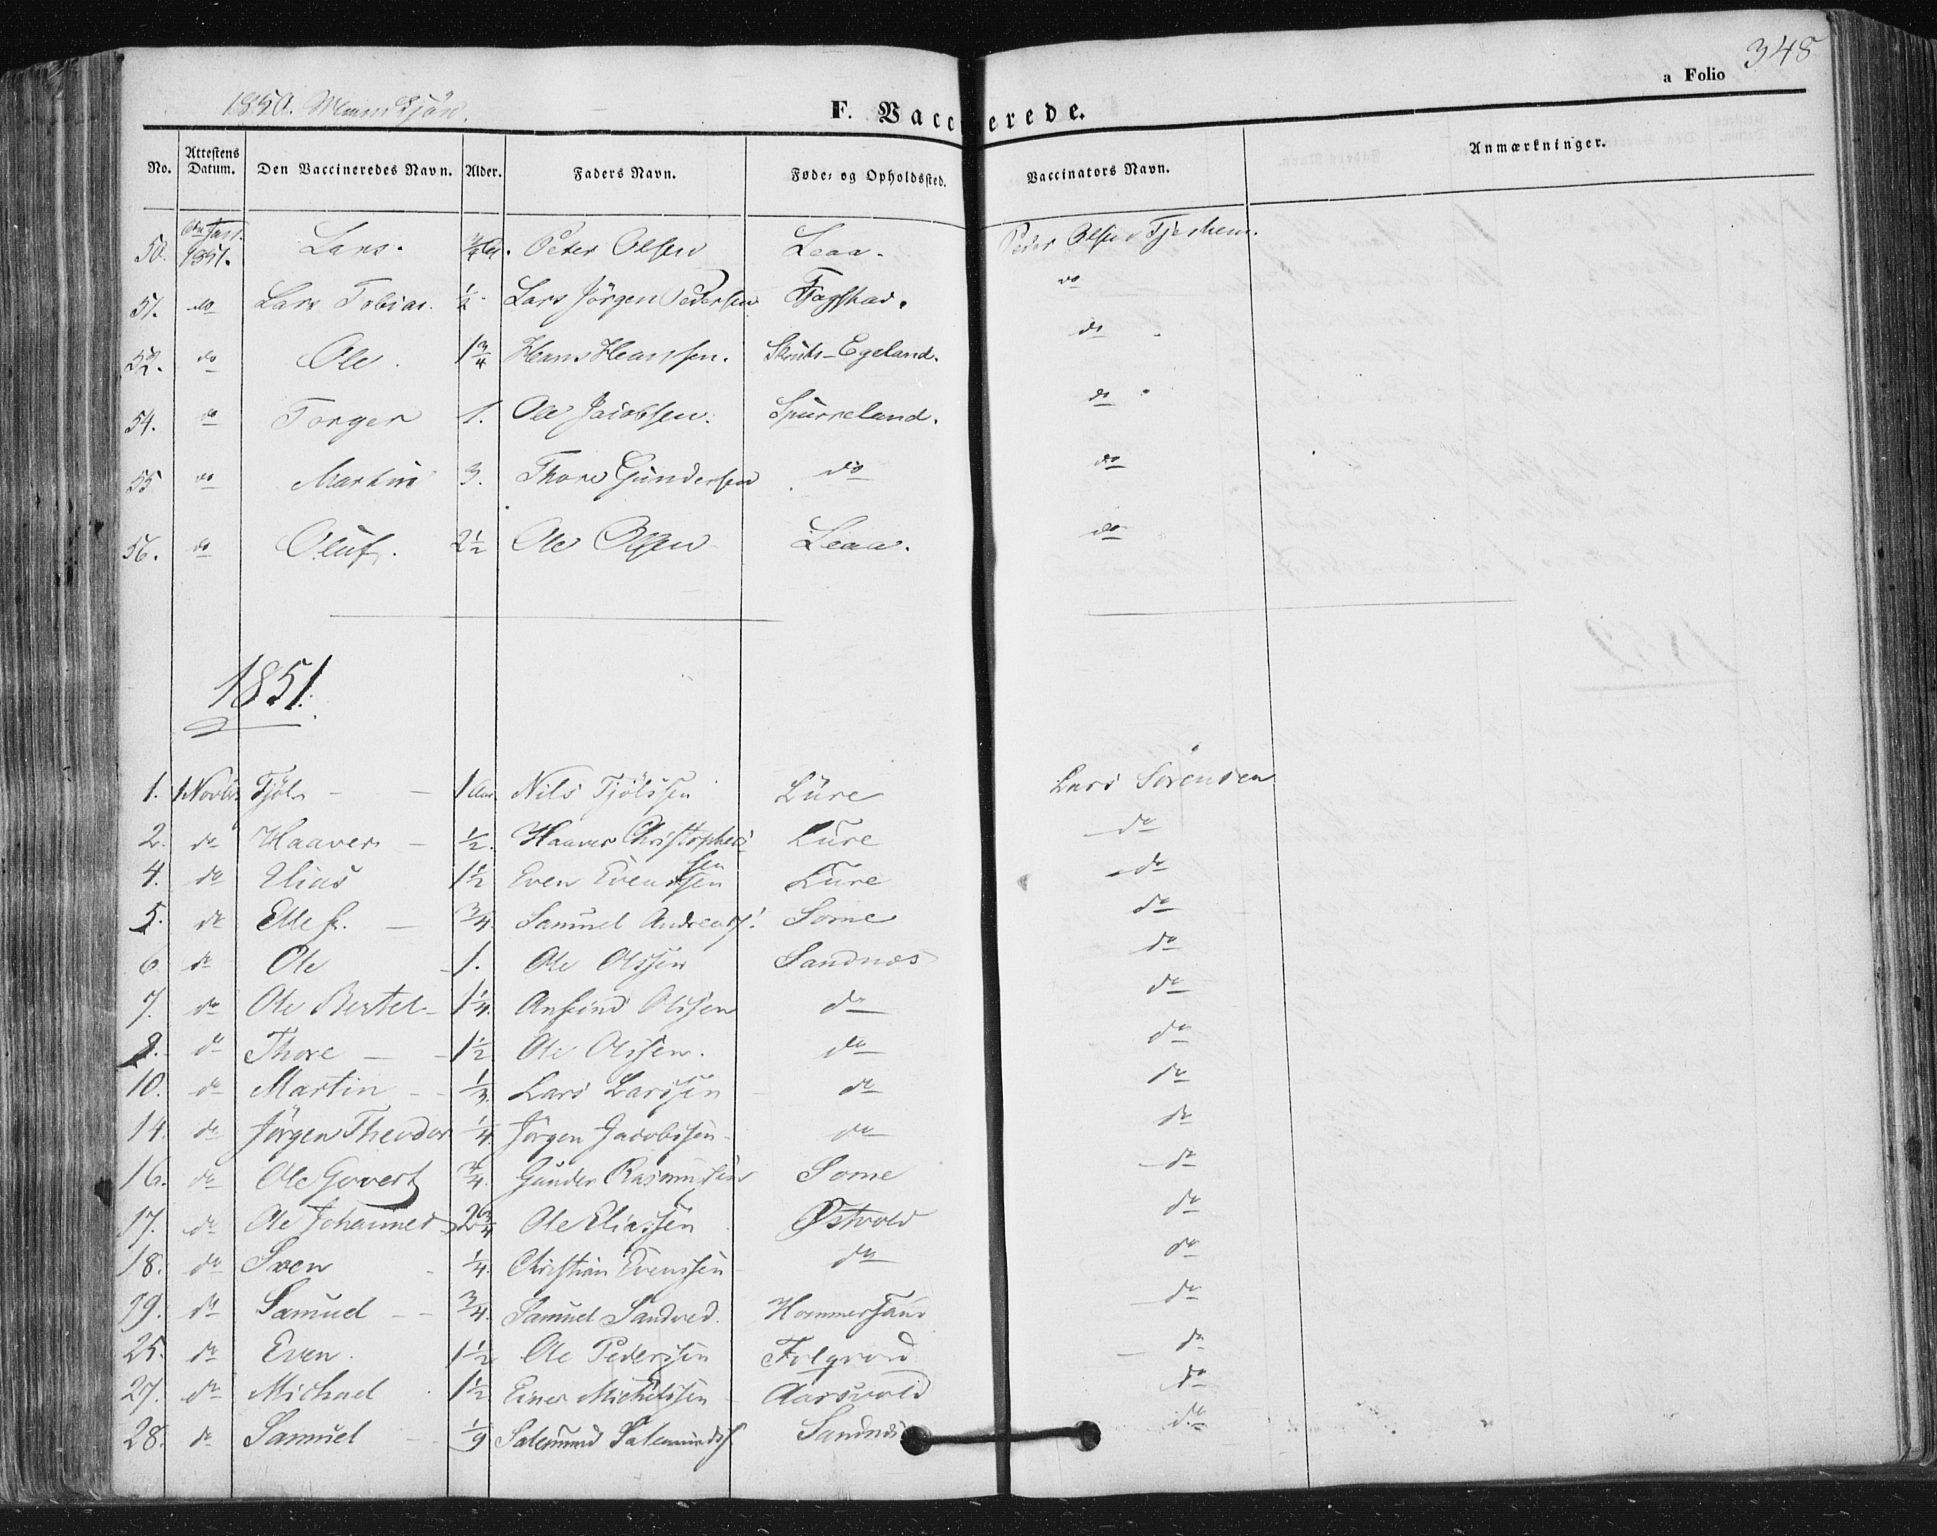 348
a Folio
1850. Mandkjön.
F. Vaccinerede.
No. Attestens Datum. Den Vaccineredes Navn. Alder. Faders Navn. Føde- og Opholdssted. Vaccinators Navn. Anmærkninger.
50. 1851. Lars. Peder Olsen Leaa. Peder Olsen
51. do Lars Tobias. 1/2 Lars Jörgen Pedersen do
52. do Ole. 1 3/4 Hans Hanssen. Egeland. do
54. do Torger 1. Ole Jacobsen. Spurreland. do
55 do Martin 3. Thore Gundersen do do
56. do Oluf. 2 1/2 Ole Olsen Leaa. do
1851.
1. 1 Novbr Tjöl 1 Aar Nils Tjölssen Lüre Lars Sörensen
2. do Haaver 1/2. Haaver Christophersen Lure do
4. do Elias 1 1/2 Even Evenssen Lure do
5. do Ellef. 3/4. Samuel Andreass. Some do
6 do Ole 1. Ole Olssen Sandnæs do
7. do Ole Bertel 1 1/4. Anfind Olssen do do
do Thore 1 1/2 Ole Olssen. do do
10. do Martin 1/3. Lars Larssen do do
14. do Jörgen Theodor 1/4. Jörgen Jacobssen do do
16. do Ole Govert 3/4. Gunder Rasmussen Some do
17. do Ole Johannes 2 3/4 Ole Eliassen Østvold do
18. do Sven 1/4. Christian Evenssen do do
19. do Samuel 3/4. Samuel Sandved. Hommersand do
25. do Even. 1 1/2 Ole Pederssen Folgvord do
27. do Michael 1 1/2 Einer Michelssen Aarsvold do
28. do Samuel 1/9 Salemund Salemundss Sandnæs do